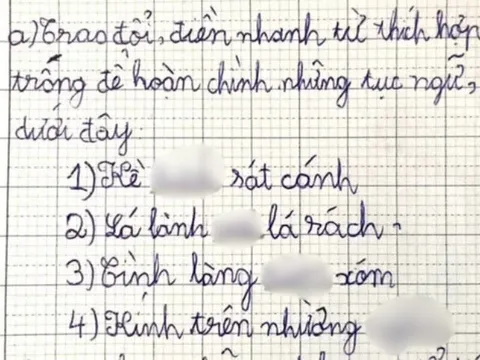 a) Trao đổi, điền nhanh từ thích hợp
trống để hoàn chỉnh những tục ngữ,
dưới đây:
1) Kề sát cánh
2) Lá lành lá rách.
3) Tình làng xóm
4) Kính trên nhường